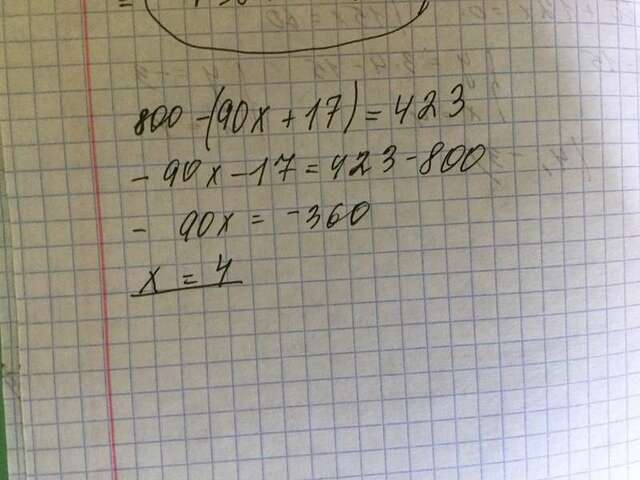 800 - (90x + 17) = 423
- 90x - 17 = 423 - 800
- 90x = -360
x = 4